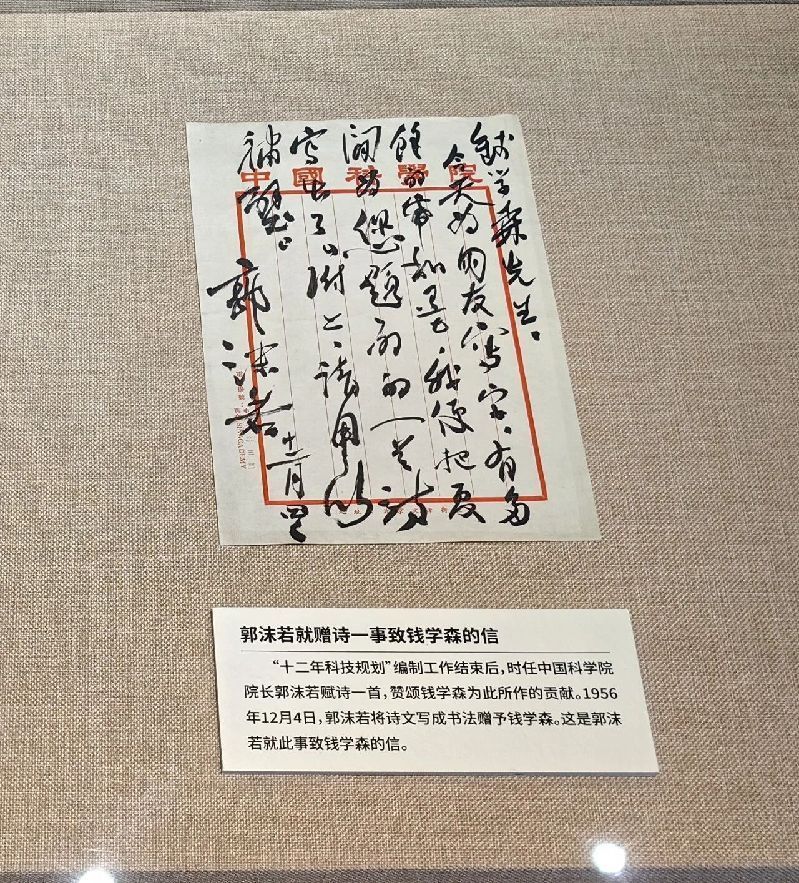 中國科學院
钱学森先生。
今天为朋友写字,有多
馀的帋和墨,我便把夏
间为您题的一首诗
写出了。附上、请用以
補壁。
郭沫若
十二月四
郭沫若就赠诗一事致钱学森的信
“十二年科技规划”编制工作结束后,时任中国科学院
院长郭沫若赋诗一首,赞颂钱学森为此所作的贡献。1956
年12月4日,郭沫若将诗文写成书法赠予钱学森。这是郭沫
若就此事致钱学森的信。